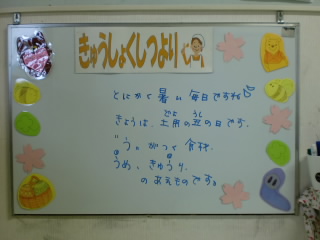 きゅうしょくしつより
とにかく暑い毎日ですね
どよう うし
きょうは、土用の丑の日です。
"う"がつく食材、
うめ、きゅうり、
のあえものです。